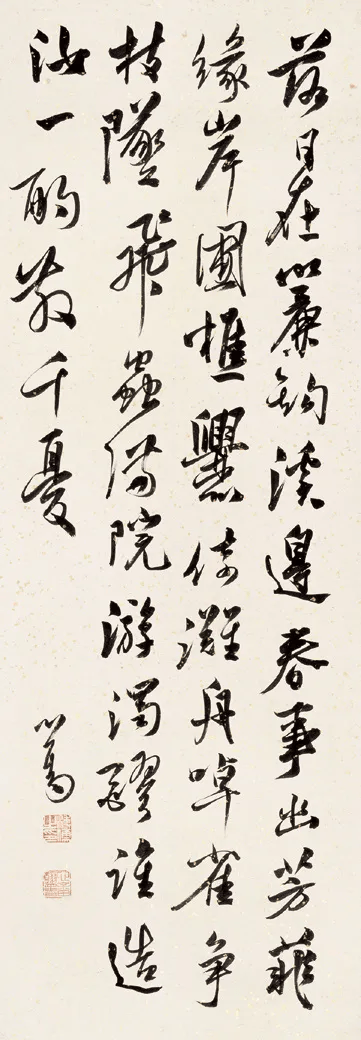 落日在簾鉤溪邊春事幽芳菲
緣岸圃樵爨倚灘舟啅雀爭
枝墜飛蟲滿院游濁醪誰造
汝一酌散千憂
心畬